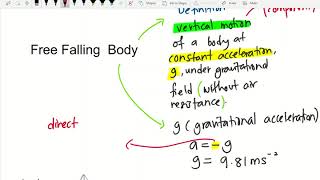 Definition
vertical motion
of a body at
constant acceleration,
g, under gravitational
field (without air
resistance).
Free Falling Body
g (gravitational acceleration)
direct
a = -g
g = 9.81 ms⁻²